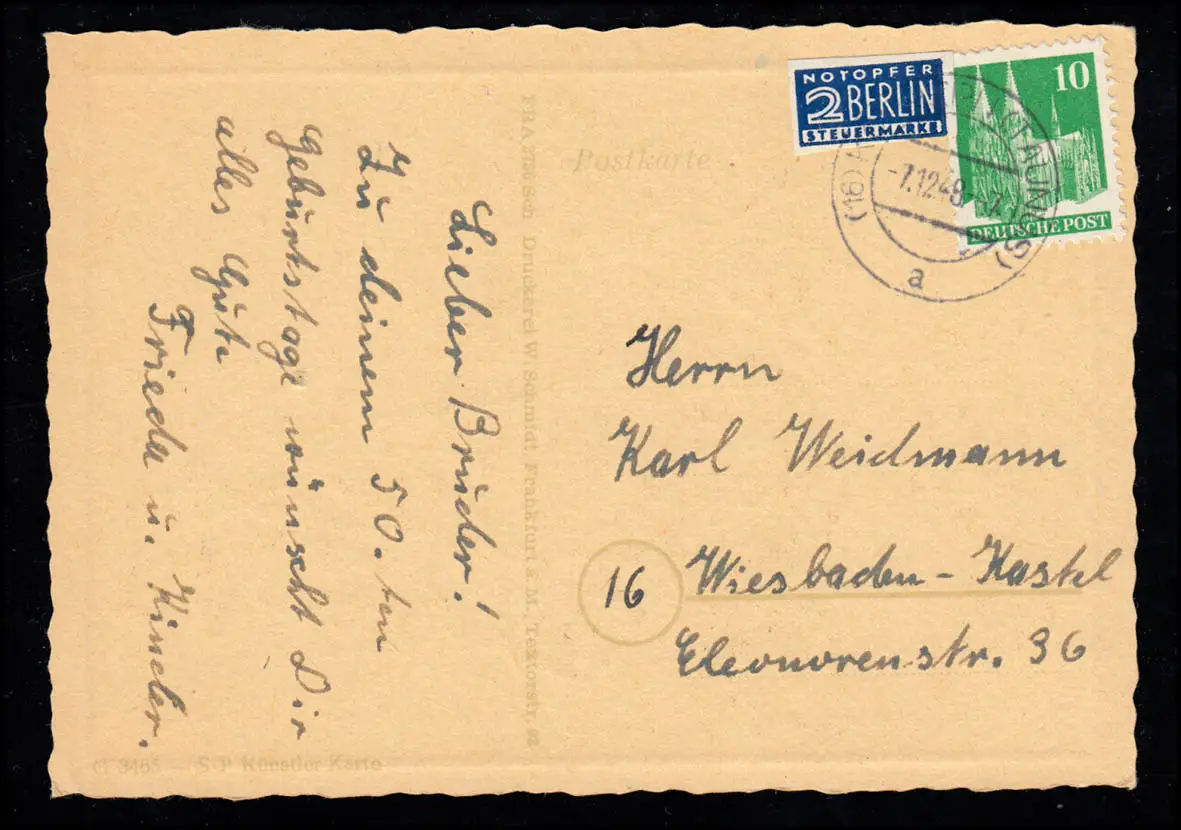 NOTOPFER
2 BERLIN
STEUERMARKE
10
DEUTSCHE POST
-7.12.48
(16)
a
Postkarte
Lieber Bruder!
Zu deinem 50.ten
Geburtstage wünscht Dir
alles Gute
Frieda u. Kinder.
Druckerei W. Schmidt Frankfurt a.M., Textorstr.
Herrn
Karl Weidmann
16 Wiesbaden-Kastel
Eleonorenstr. 36
Künstler-Karte